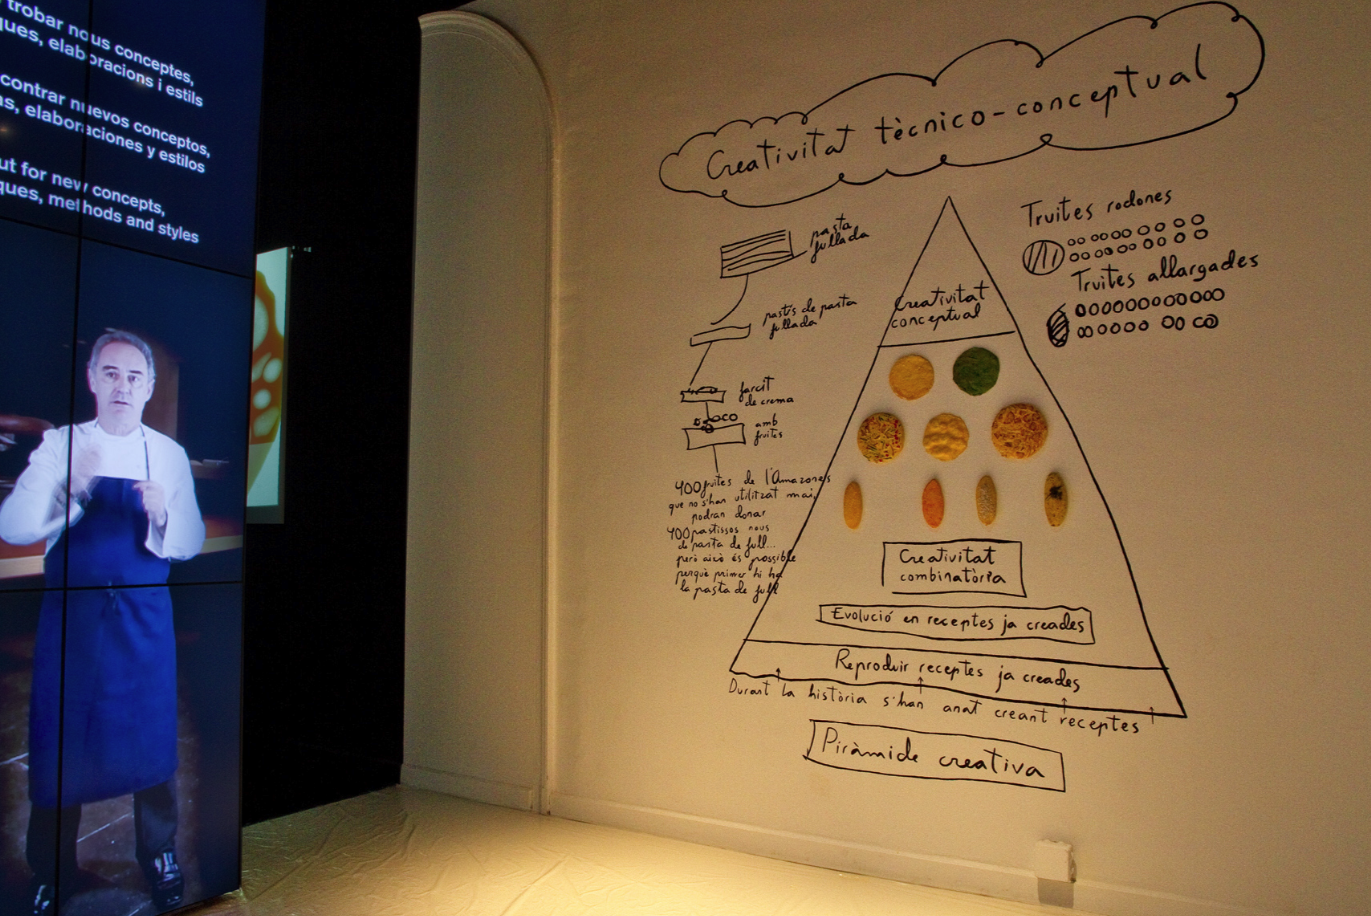 trobar nous conceptes,
ques, elaboracions i estils
contrar nuevos conceptos,
as, elaboraciones y estilos
ut for new concepts,
ques, methods and styles
Creativitat tècnico-conceptual
pasta
fullada
pastís de pasta
fullada
farcit
de crema
amb
fruites
400 fruites de l'Amazones
que no s'han utilitzat mai,
podran donar
400 pastissos nous
de pasta de full...
però això és possible
perquè primer hi ha
la pasta de full
Truites rodones
Truites allargades
Creativitat
conceptual
Creativitat
combinatòria
Evolució en receptes ja creades
Reproduir receptes ja creades
Durant la història s'han anat creant receptes
Piràmide creativa